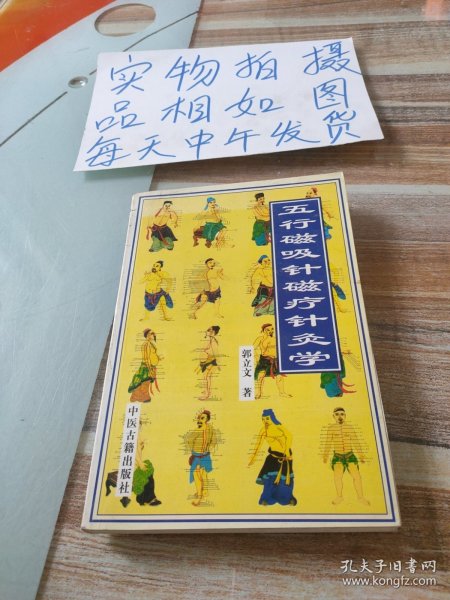 实物拍摄
品相如图
每天中午发货
五行磁吸针磁疗针灸学
郭立文 著
中医古籍出版社
孔夫子旧书网
www.kongfz.com